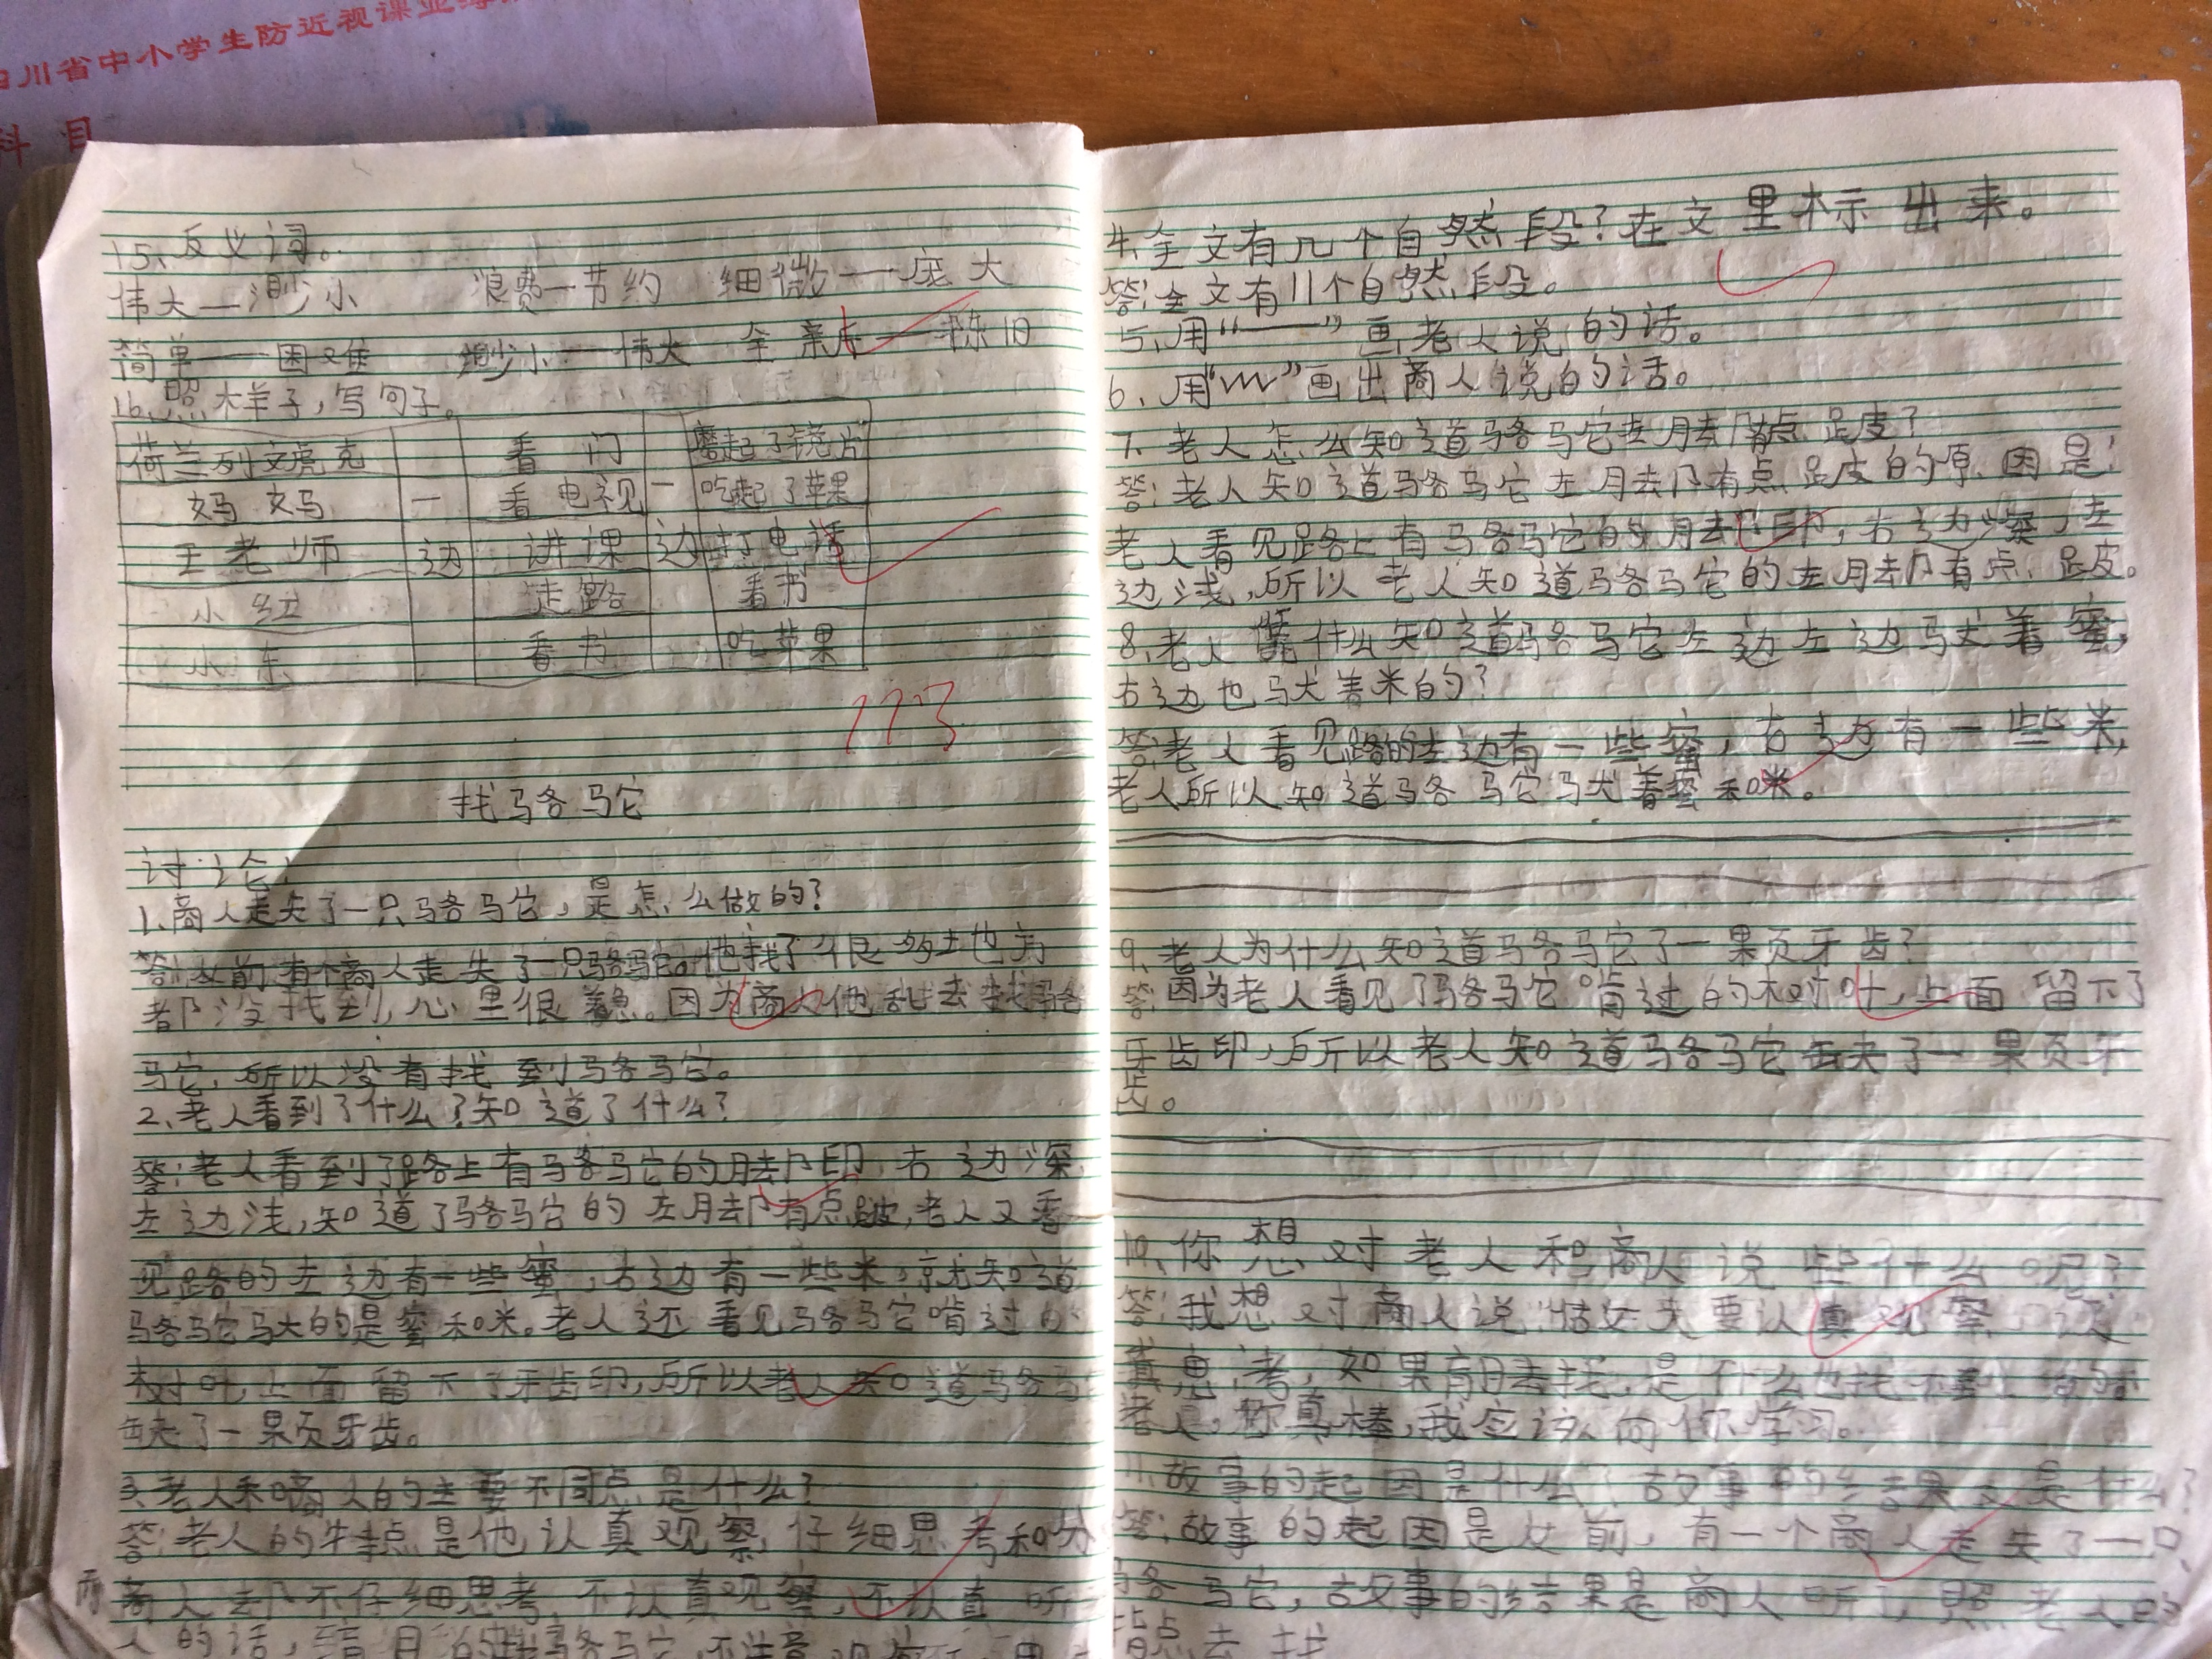 四川省中小学生防近视课业簿
科 目
15、反义词。
伟大—渺小 浪费—节约 细微—庞大
简单—困难 渺小—伟大 全新—陈旧
16、照样子,写句子。
荷兰列文虎克 看门 磨起了镜片
妈妈 一 看电视 一 吃起了苹果
王老师 边 讲课 边 打电话
小红 走路 看书
小东 看书 吃苹果
11.3
找骆驼
讨论:
1、商人走失了一只骆驼,是怎么做的?
答:从前有个商人走失了一只骆驼。他找了很多地方
都没找到,心里很着急。因为商人他乱去找骆
驼,所以没有找到骆驼。
2、老人看到了什么?知道了什么?
答:老人看到了路上有骆驼的脚印,右边深
左边浅,知道了骆驼的左脚有点跛,老人又看
见路的左边有一些蜜,右边有一些米,就知道
骆驼驮的是蜜和米。老人还看见骆驼啃过的
树叶,上面留下了牙齿印,所以老人知道骆驼
缺了一颗牙齿。
3、老人和商人的主要不同点是什么?
答:老人的特点是他认真观察,仔细思考和分
而商人却不仔细思考,不认真观察,不认真听
人的话,盲目的找骆驼,不注意观察
4、全文有几个自然段?在文里标出来。
答:全文有11个自然段。
5、用“——”画老人说的话。
6、用“﹏﹏”画出商人说的话。
7、老人怎么知道骆驼左脚有点跛?
答:老人知道骆驼左脚有点跛的原因是:
老人看见路上有骆驼的脚印,右边深,左
边浅,所以老人知道骆驼的左脚有点跛。
8、老人凭什么知道骆驼左边左边驮着蜜,
右边也驮着米的?
答:老人看见路的左边有一些蜜,右边有一些米,
老人所以知道骆驼驮着蜜和米。
9、老人为什么知道骆驼了一颗牙齿?
答:因为老人看见了骆驼啃过的树叶,上面留下了
牙齿印,所以老人知道骆驼缺了一颗牙
齿。
10、你想对老人和商人说些什么呢?
答:我想对商人说:要认真观察,认
真思考,如果盲目去找,是什么也找不到
老人,你真棒,我应该向你学习。
11、故事的起因是什么?故事的结果又是什么?
答:故事的起因是从前,有一个商人走失了一只
骆驼,故事的结果是商人听了,照老人的
指点去找